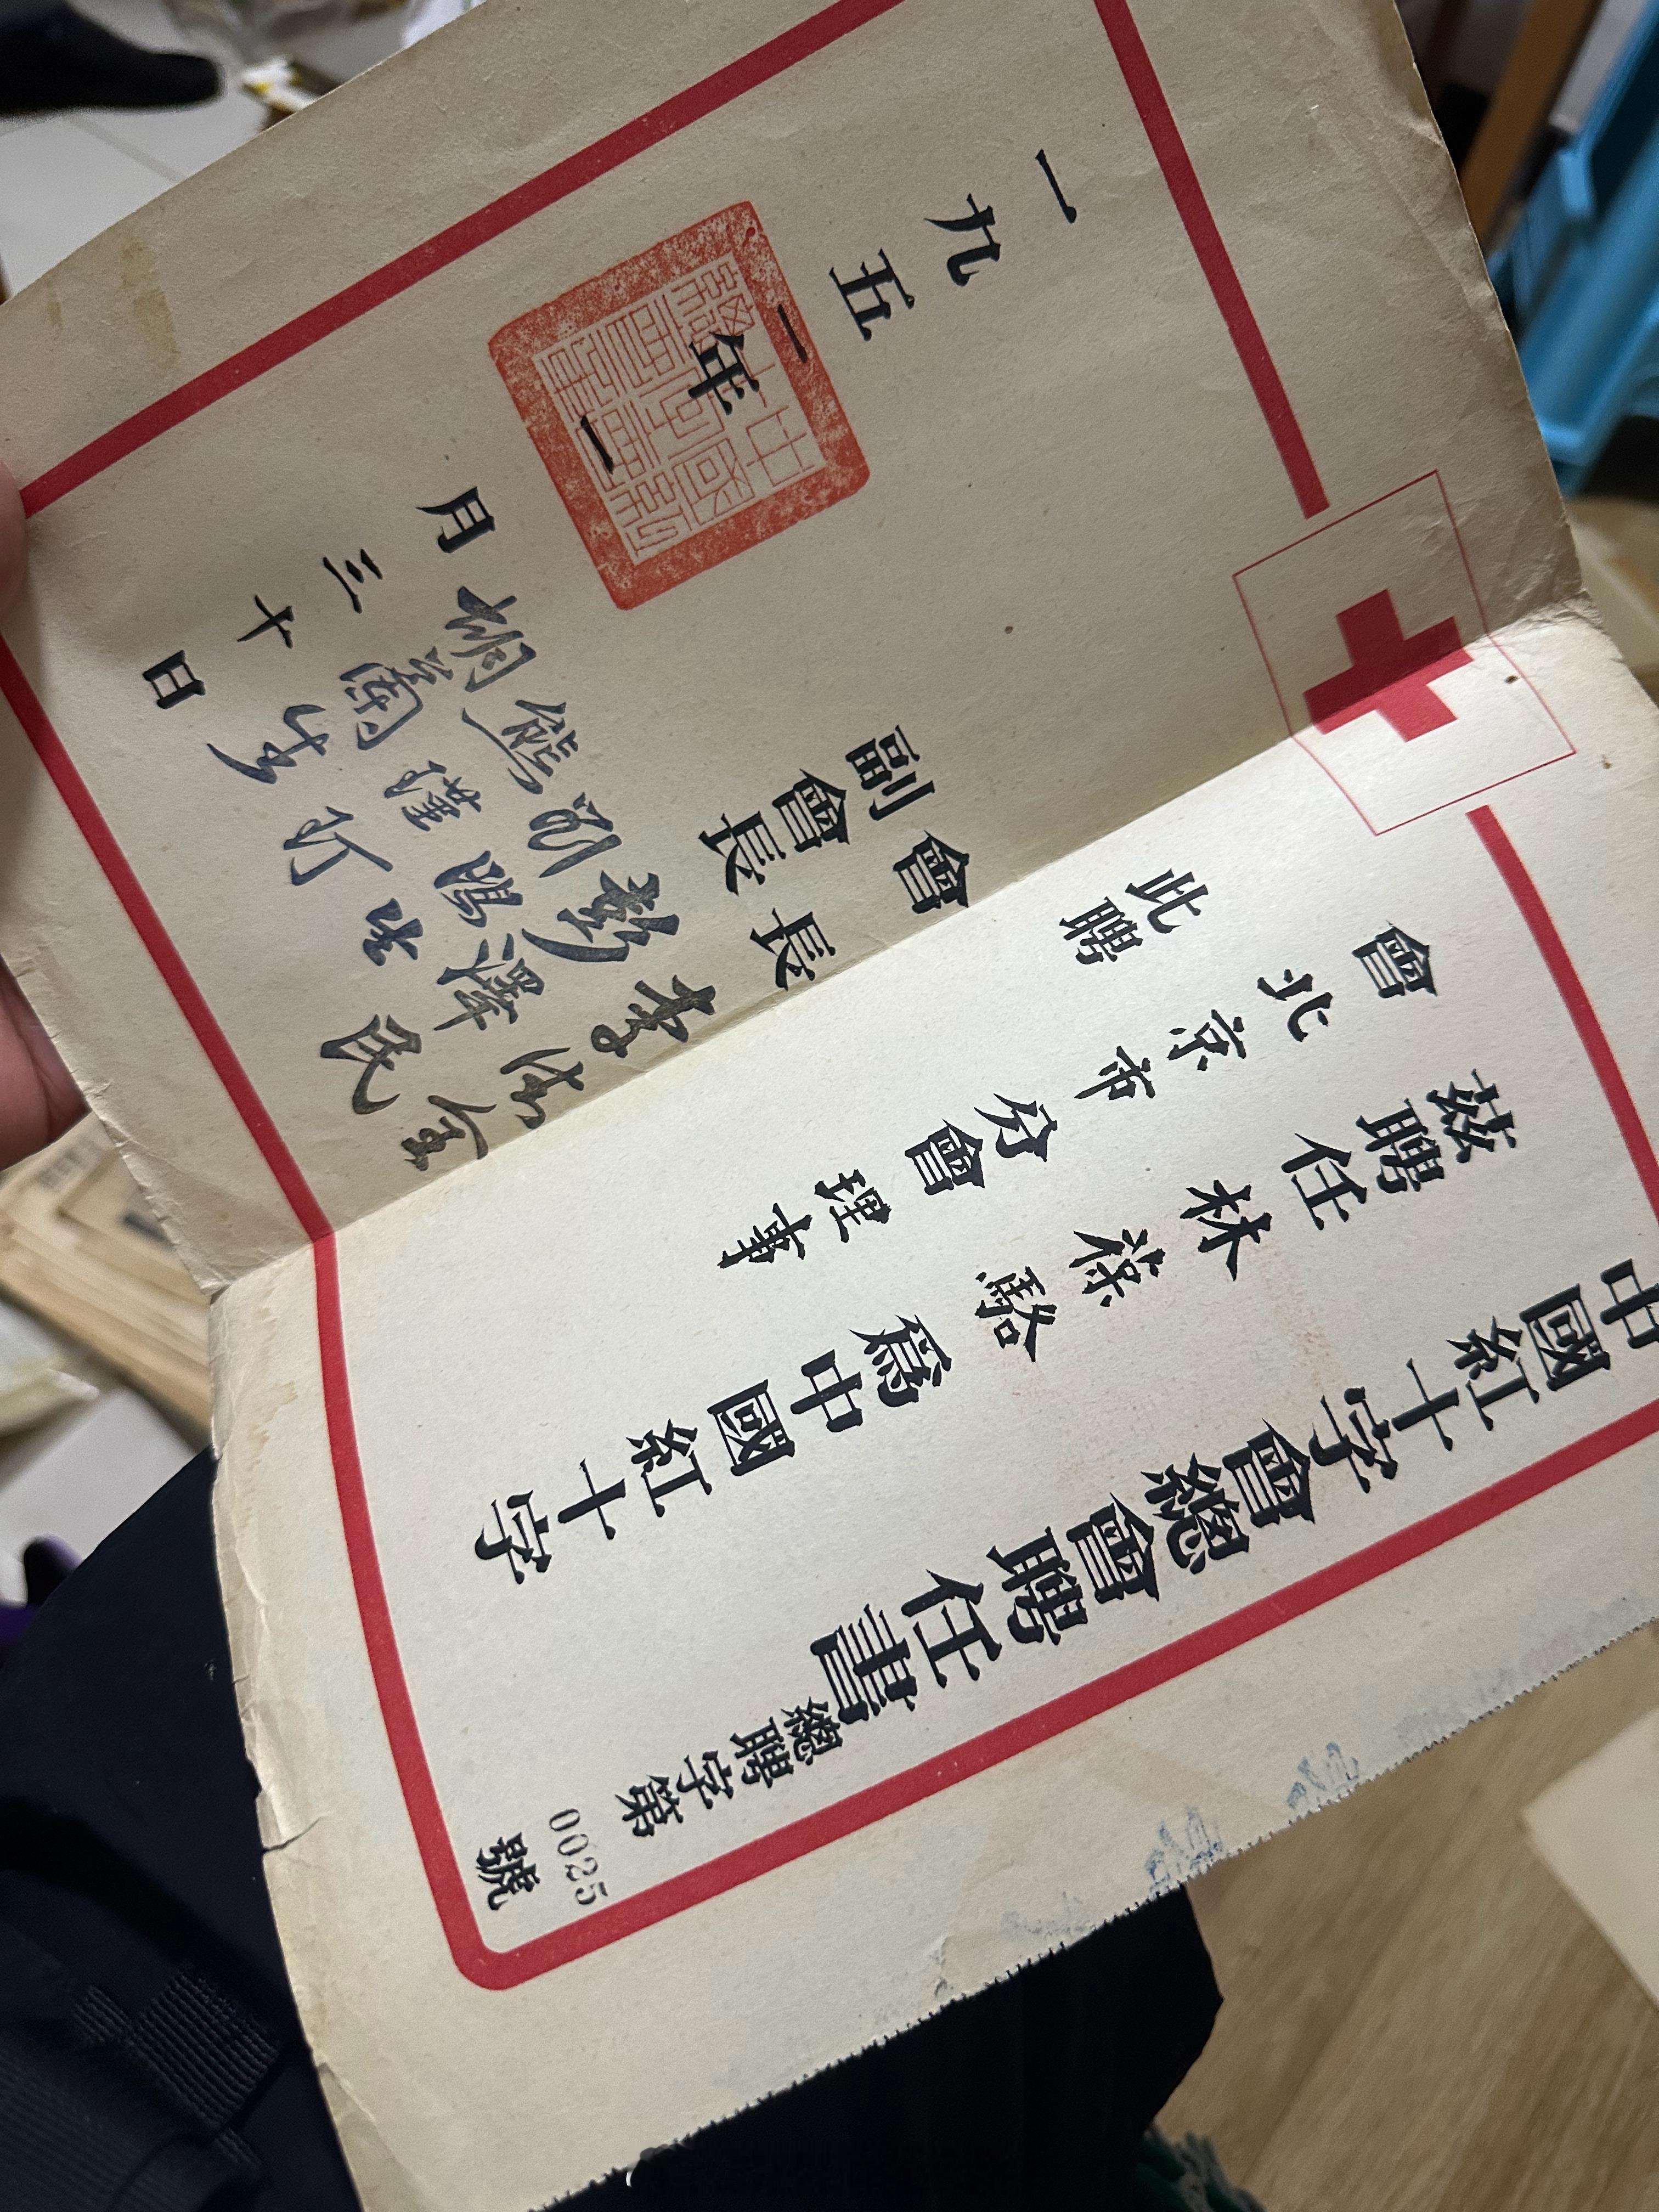 中國紅十字會總會聘任書
總聘字第0025號
茲聘任林葆駱爲中國紅十字
會北京市分會理事
此聘
會長
李德全
副會長
彭澤民
劉鴻生
熊瑾玎
胡蘭生
一九五一年一月三十日